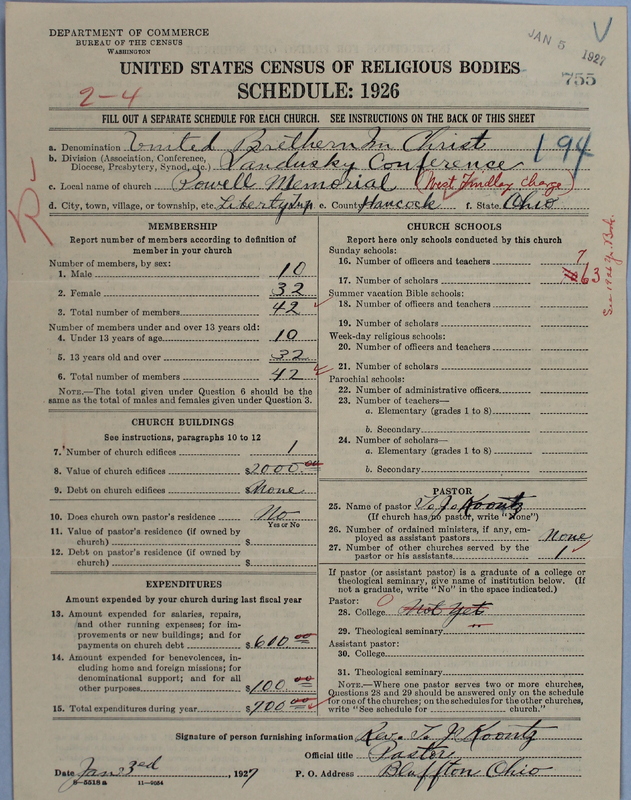 DEPARTMENT OF COMMERCE
BUREAU OF THE CENSUS
WASHINGTON
JAN 5 1927
V
UNITED STATES CENSUS OF RELIGIOUS BODIES
755
SCHEDULE: 1926
2-4
FILL OUT A SEPARATE SCHEDULE FOR EACH CHURCH. SEE INSTRUCTIONS ON THE BACK OF THIS SHEET
a. Denomination United Brethern In Christ
194
b. Division (Association, Conference, Diocese, Presbytery, Synod, etc.) Sandusky Conference
c. Local name of church Powell Memorial (West Findlay Charge)
d. City, town, village, or township, etc. Liberty Twp e. County Hancock f. State Ohio
MEMBERSHIP
Report number of members according to definition of
member in your church
Number of members, by sex:
1. Male 10
2. Female 32
3. Total number of members 42
Number of members under and over 13 years old:
4. Under 13 years of age 10
5. 13 years old and over 32
6. Total number of members 42
NOTE.—The total given under Question 6 should be
same as the total of males and females given under Question 3.
CHURCH BUILDINGS
See instructions, paragraphs 10 to 12
7. Number of church edifices 1
8. Value of church edifices $2000.00
9. Debt on church edifices $None
10. Does church own pastor's residence No
Yes or No
11. Value of pastor's residence (if owned by
church) $
12. Debt on pastor's residence (if owned by
church) $
EXPENDITURES
Amount expended by your church during last fiscal year
13. Amount expended for salaries, repairs,
and other running expenses; for im-
provements or new buildings; and for
payments on church debt $600.00
14. Amount expended for benevolences, in-
cluding home and foreign missions; for
denominational support; and for all
other purposes $100.00
15. Total expenditures during year $700.00
CHURCH SCHOOLS
Report here only schools conducted by this church
Sunday schools:
16. Number of officers and teachers 7
17. Number of scholars 63
See 1926 Yr. Book.
Summer vacation Bible schools:
18. Number of officers and teachers
19. Number of scholars
Week-day religious schools:
20. Number of officers and teachers
21. Number of scholars
Parochial schools:
22. Number of administrative officers
23. Number of teachers—
a. Elementary (grades 1 to 8)
b. Secondary
24. Number of scholars—
a. Elementary (grades 1 to 8)
b. Secondary
PASTOR
25. Name of pastor T. J. Koontz
(If church has no pastor, write "None")
26. Number of ordained ministers, if any, em-
ployed as assistant pastors None
27. Number of other churches served by the
pastor or his assistants 1
If pastor (or assistant pastor) is a graduate of a college or
theological seminary, give name of institution below. (If
not a graduate, write "No" in the space indicated.)
Pastor:
28. College Not Yet
29. Theological seminary
Assistant pastor:
30. College
31. Theological seminary
NOTE.—Where one pastor serves two or more churches,
Questions 28 and 29 should be answered only on the schedule
for one of the churches; on the schedules for the other churches,
write "See schedule for church."
Signature of person furnishing information Rev. T. J. Koontz
Official title Pastor
Date Jan 3rd, 1927 P. O. Address Bluffton Ohio
8—5518a 11—9054